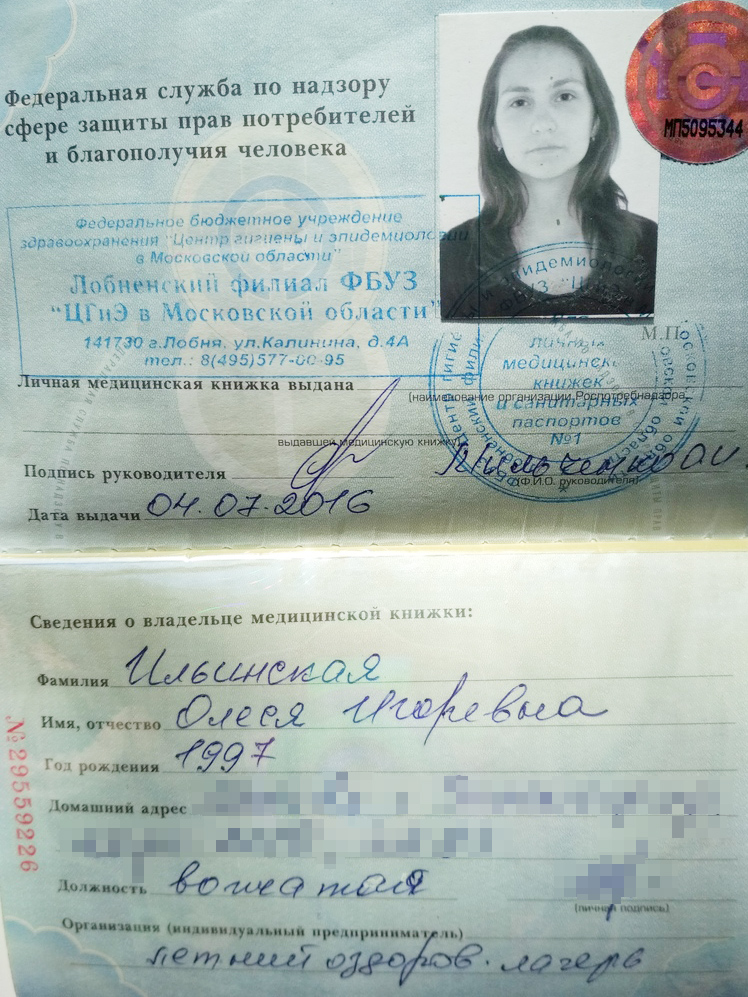 Федеральная служба по надзору
сфере защиты прав потребителей
и благополучия человека
МП5095344
Федеральное бюджетное учреждение
здравоохранения "Центр гигиены и эпидемиологии
в Московской области"
Лобненский филиал ФБУЗ
"ЦГиЭ в Московской области"
141730 г.Лобня, ул.Калинина, д.4А
тел.: 8(495)577-00-95
М.П.
личных
медицинских
книжек
и санитарных
паспортов
№1
Личная медицинская книжка выдана
(наименование организации Роспотребнадзора,
выдавшей медицинскую книжку)
Подпись руководителя
(Ф.И.О. руководителя)
Дата выдачи 04.07.2016
Сведения о владельце медицинской книжки:
Фамилия Ильинская
Имя, отчество Олеся Игоревна
Год рождения 1997
Домашний адрес
Должность вожатая
(личная подпись)
Организация (индивидуальный предприниматель)
летний оздоров. лагерь
№29559226